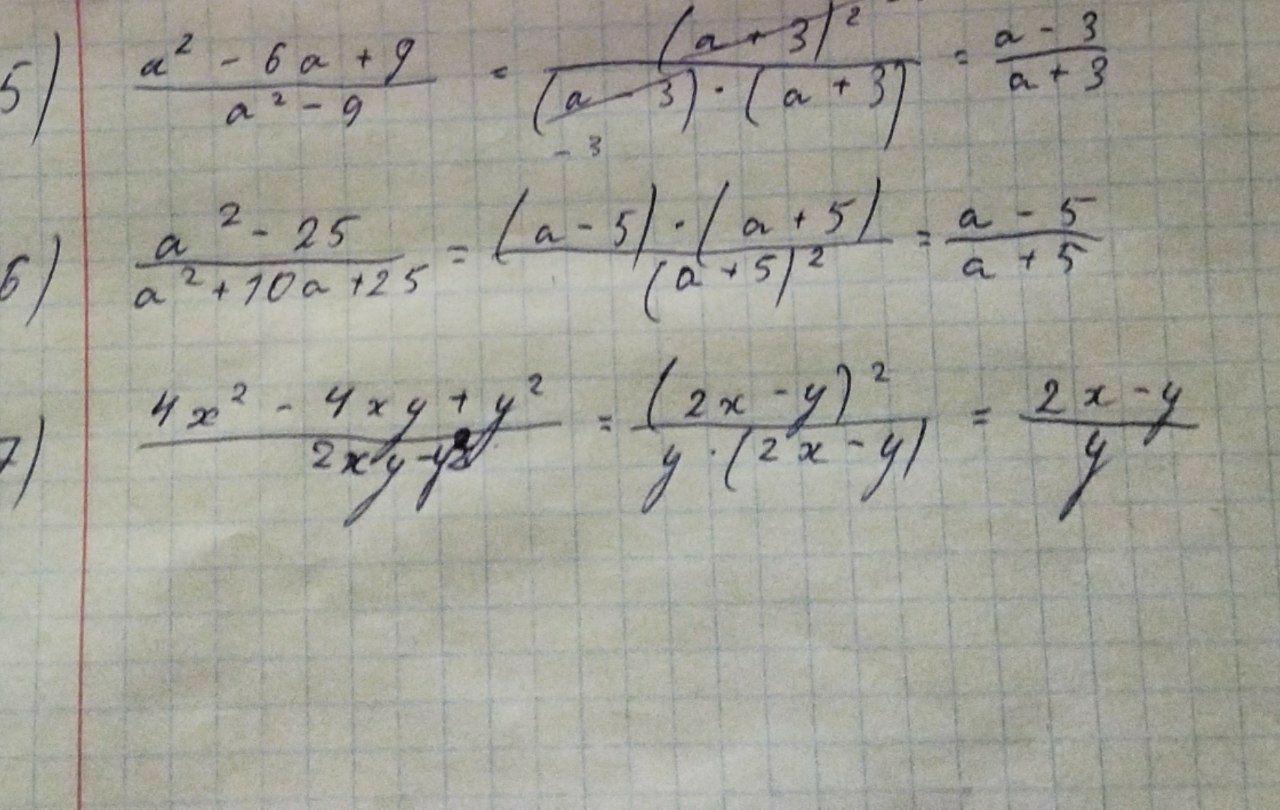 5) (a² - 6a + 9)/(a² - 9) = (a + 3)²/((a - 3) · (a + 3)) = (a - 3)/(a + 3)
- 3
6) (a² - 25)/(a² + 10a + 25) = ((a - 5) · (a + 5))/(a + 5)² = (a - 5)/(a + 5)
7) (4x² - 4xy + y²)/(2xy - y²) = (2x - y)²/(y · (2x - y)) = (2x - y)/y